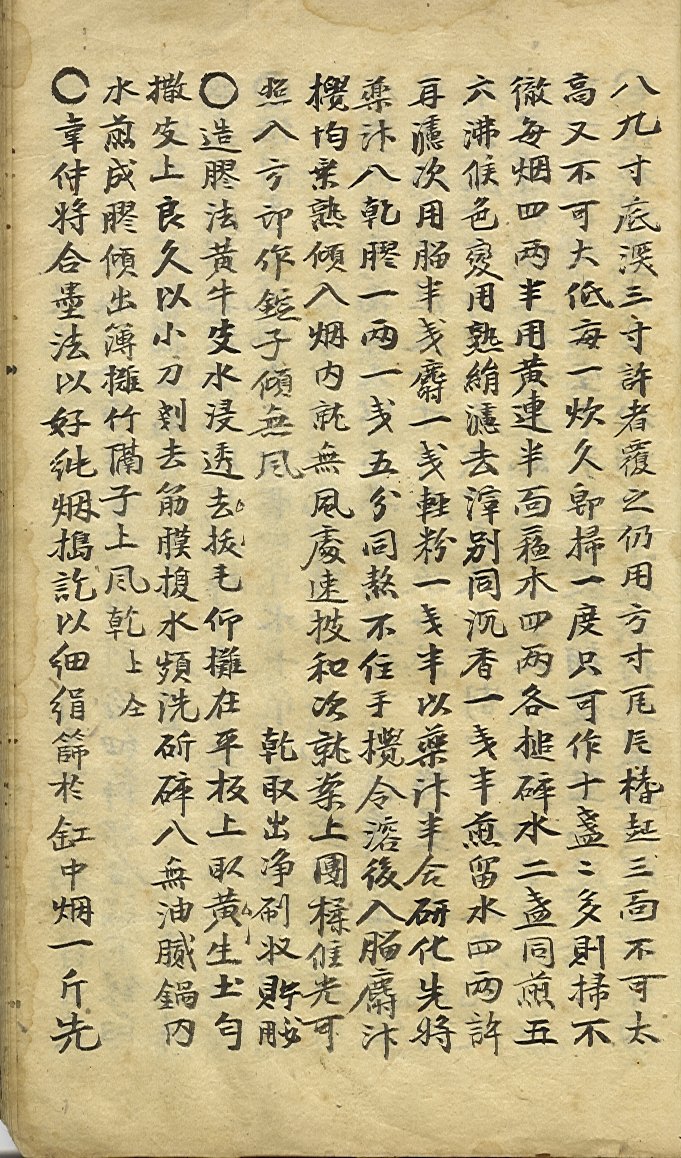 八九寸底深三寸許者覆之仍用方寸瓦片樁起三面不可太
高又不可大低每一炊久卽掃一度只可作十盞〻多則掃不
徹每烟四两半用黃連半両蘓木四两各搥碎水二盞同煎五
六沸候色變用熟絹濾去滓别同沉香一戋半煎留水四两許
再濾次用腦半戋麝一戋輕粉一戋半以藥汁半合研化先將
藥汁入乾膠一两一戋五分同熬不住手攪令溶後入腦麝汁
攪均乗熟傾入烟内就無風處速拔和次就案上團楺候光可
照入方印作錠子傾無风 乾取出净刷收貯
造膠法黃牛皮水浸透去拔毛仰攤在平板上取黃生土勻
撒皮上良久以小刀剡去筋膜復水頻洗斫碎入無油膩鍋内
水煎成膠傾出簿攤竹隔子上风乾上仝
韋仲將合墨法以好純烟搗訖以细绢篩於缸中烟一斤先